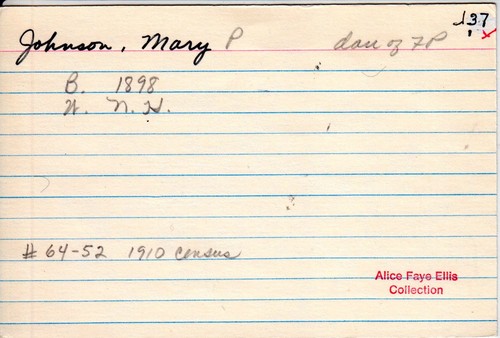 137
Johnson, Mary P dau of FP
B. 1898
W. N. H.
# 64-52 1910 census
Alice Faye Ellis
Collection